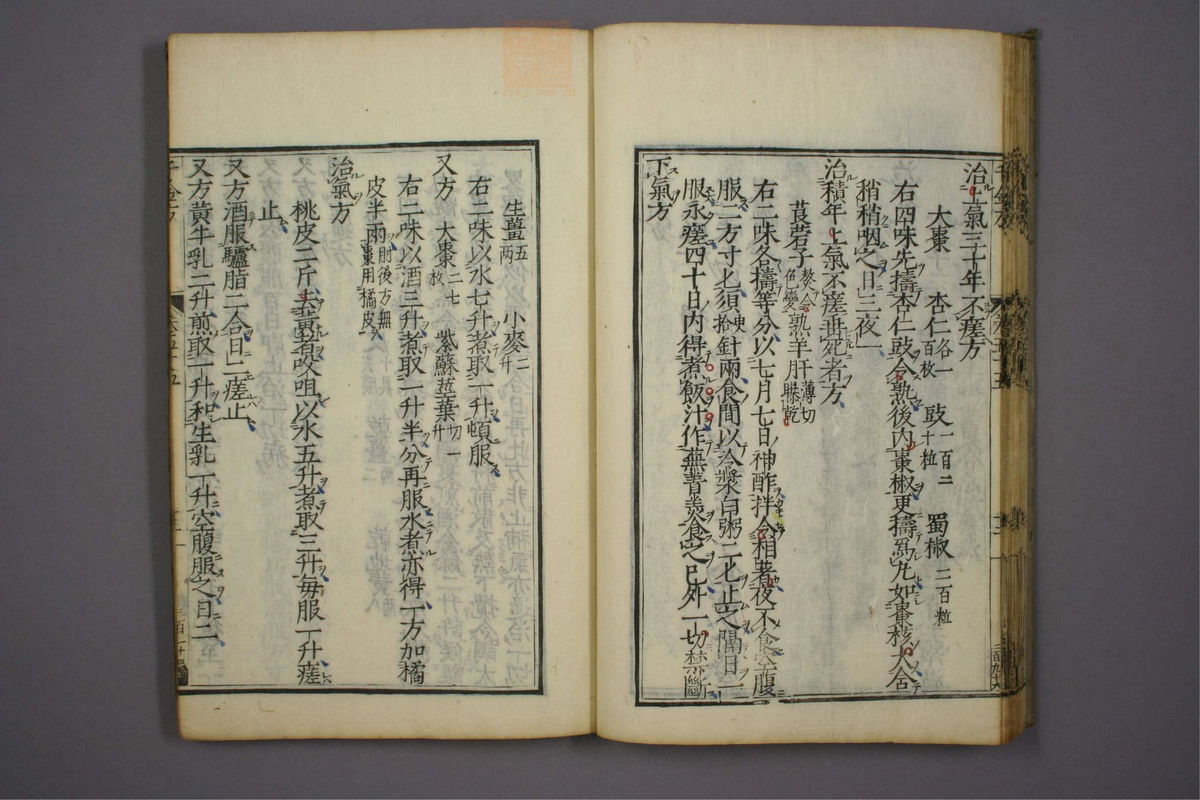 治上氣三十年不瘥方
大棗 杏仁各一百枚 豉一百二十粒 蜀椒二百粒
右四味先擣杏仁豉令熟後內棗椒更擣爲丸如棗核大含
稍稍咽之日三夜一
治積年上氣不瘥垂死者方
莨菪子熬令色變 熟羊肝薄切曝乾
右二味各擣等分以七月七日神酢拌令相著夜不食空腹
服二方寸匕須臾拾針兩食間以冷漿白粥二匕止之隔日一
服永瘥四十日內得煮飯汁作蕪菁羹食之已外一切禁斷
下氣方
生薑五兩 小麥二升
右二味以水七升煮取一升頓服
又方 大棗二七枚 紫蘇莖葉切一升
右二味以酒三升煮取一升半分再服水煮亦得一方加橘
皮半兩肘後方無棗用橘皮
治氣方
桃皮二斤去黃㕮咀以水五升煮取三升每服一升瘥
止
又方酒服驢脂二合日二瘥止
又方黃牛乳二升煎取一升和生乳一升空腹服之日二